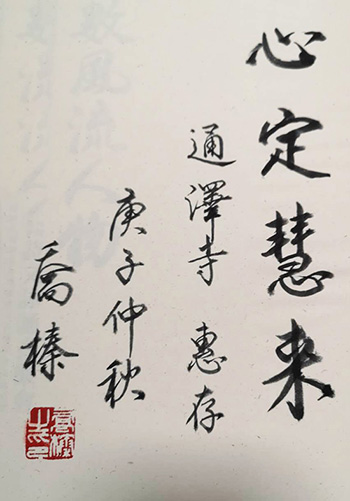 心定慧来
通澤寺 惠存
庚子仲秋
喬榛